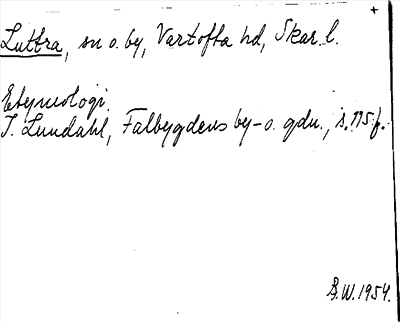 Luttra, sn o. by, Vartofta hd, Skar. l.
Etymologi.
I. Lundahl, Falbygdens by- o. gdn., s. 195 f.
B.W. 1954.